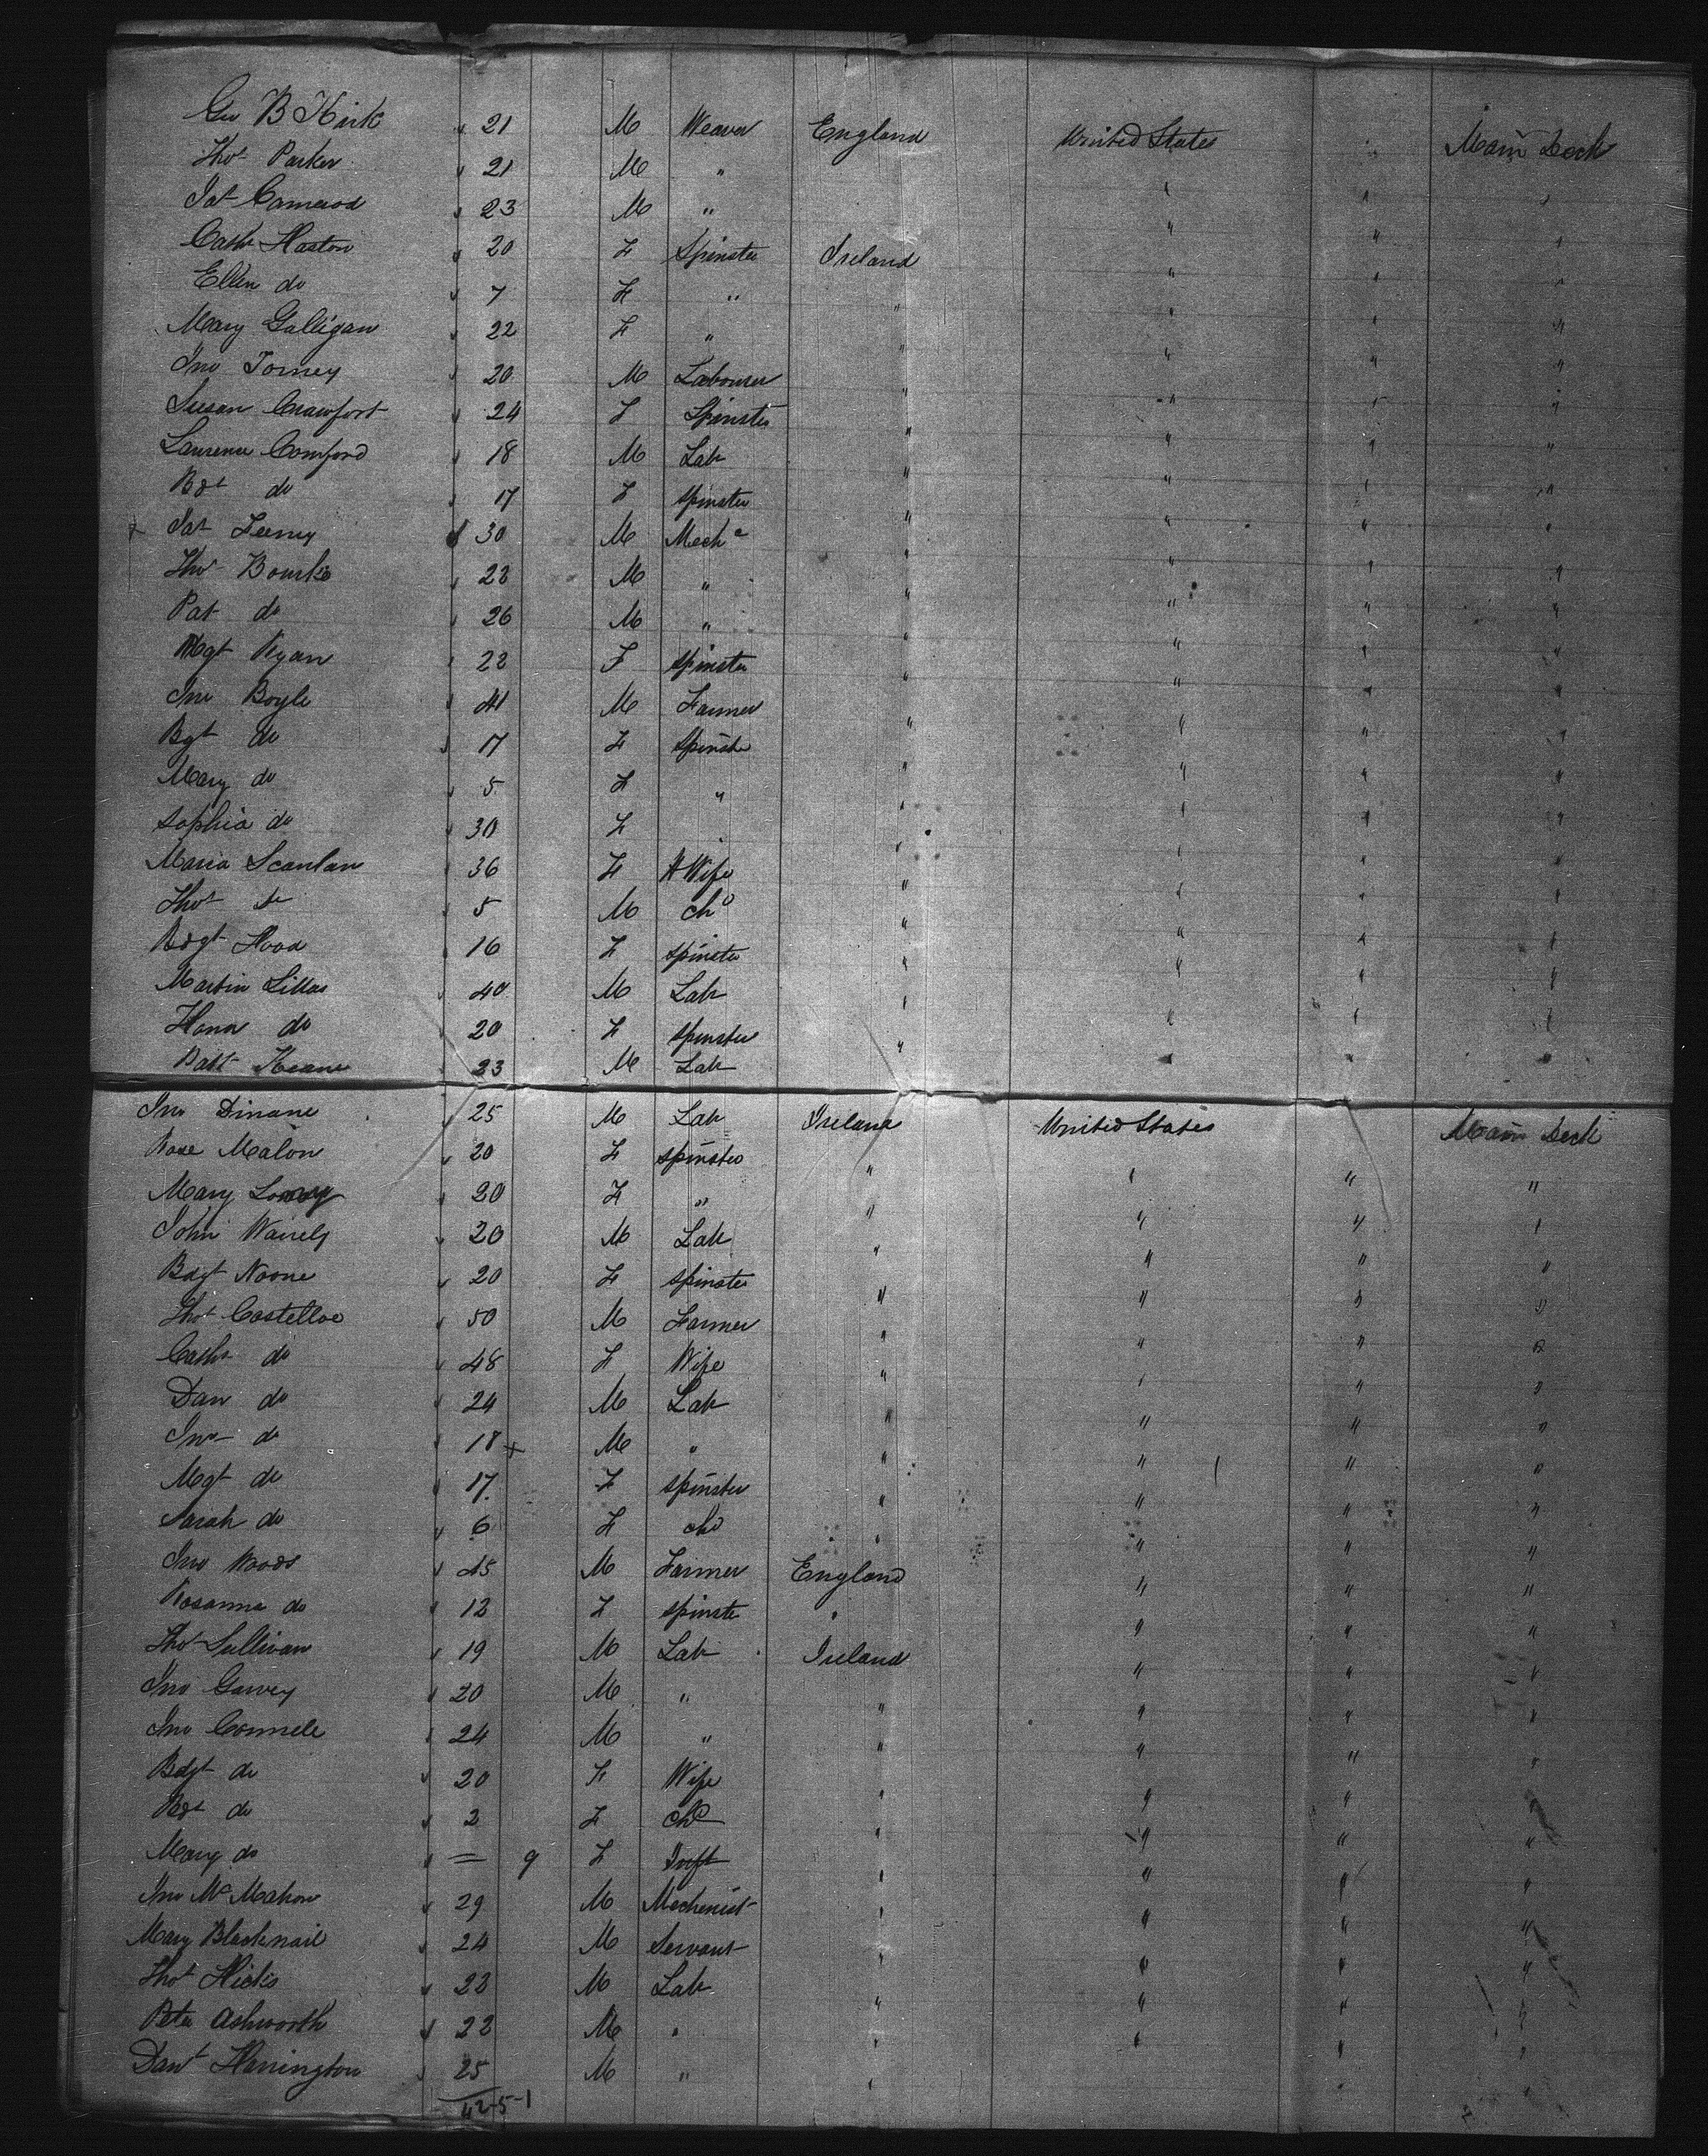 Geo B Kirk 21 M Weaver England United States Main Deck
Thos Parker 21 M "
Jas 23 M " " " "
Cath 20 F Spinster Ireland " " "
Ellen do 7 F " " " " "
Mary Galligan 22 F " " " " "
Jno Torney 20 M Labourer " " " "
Susan Crawfort 24 F Spinster " " " "
Laurence Comford 18 M Lab " " " "
Bdt do 17 F spinster " " " "
x Pat 30 M Mechc " " " "
Thos Bourke 22 M " " " " "
Pat do 26 M " " " " "
Mgt Ryan 22 F spinster " " " "
Jno Boyle 41 M Farmer " " " "
Bgt do 17 F Spinster " " " "
Mary do 5 F " " " " "
Sophia do 30 F " " " " "
Maria Scanlan 36 F H Wife " " " "
Thos do 5 M chd " " " "
Bdgt Hood 16 F spinster " " " "
Martin 40 M Lab " " " "
Hana do 20 F spinster " " " "
Batt Keane 23 M Lab " " " "
Jno Dinane 25 M Lab Ireland United States Main Deck
Rose Malon 20 F spinster " " " "
Mary 20 F " " " " "
John 20 M Lab " " " "
Bdgt Noone 20 F spinster " " " "
Thos Costelloe 50 M Farmer " " " "
Cath do 48 F Wife " " " "
Dan do 24 M Lab " " " "
Jno do 18 x M " " " " "
Mgt do 17 F spinster " " " "
Sarah do 6 F chd " " " "
Jno Woods 45 M Farmer England " " "
Rosanna do 12 F spinster " " " "
Thos Sullivan 19 M Lab Ireland " " "
Jno Garvey 20 M " " " " "
Jno Connele 24 M " " " " "
Bdgt do 20 F Wife " " " "
Bdt do 2 F chd " " " "
Mary do = 9 F Inft " " " "
Jno Mc Mahon 29 M Mechenist " " " "
Mary Blacknail 24 M Servant " " " "
Thos Hicks 22 M Lab " " " "
Peter Ashworth 22 M " " " " "
Danl Harrington 25 M " " " "
42-5-1